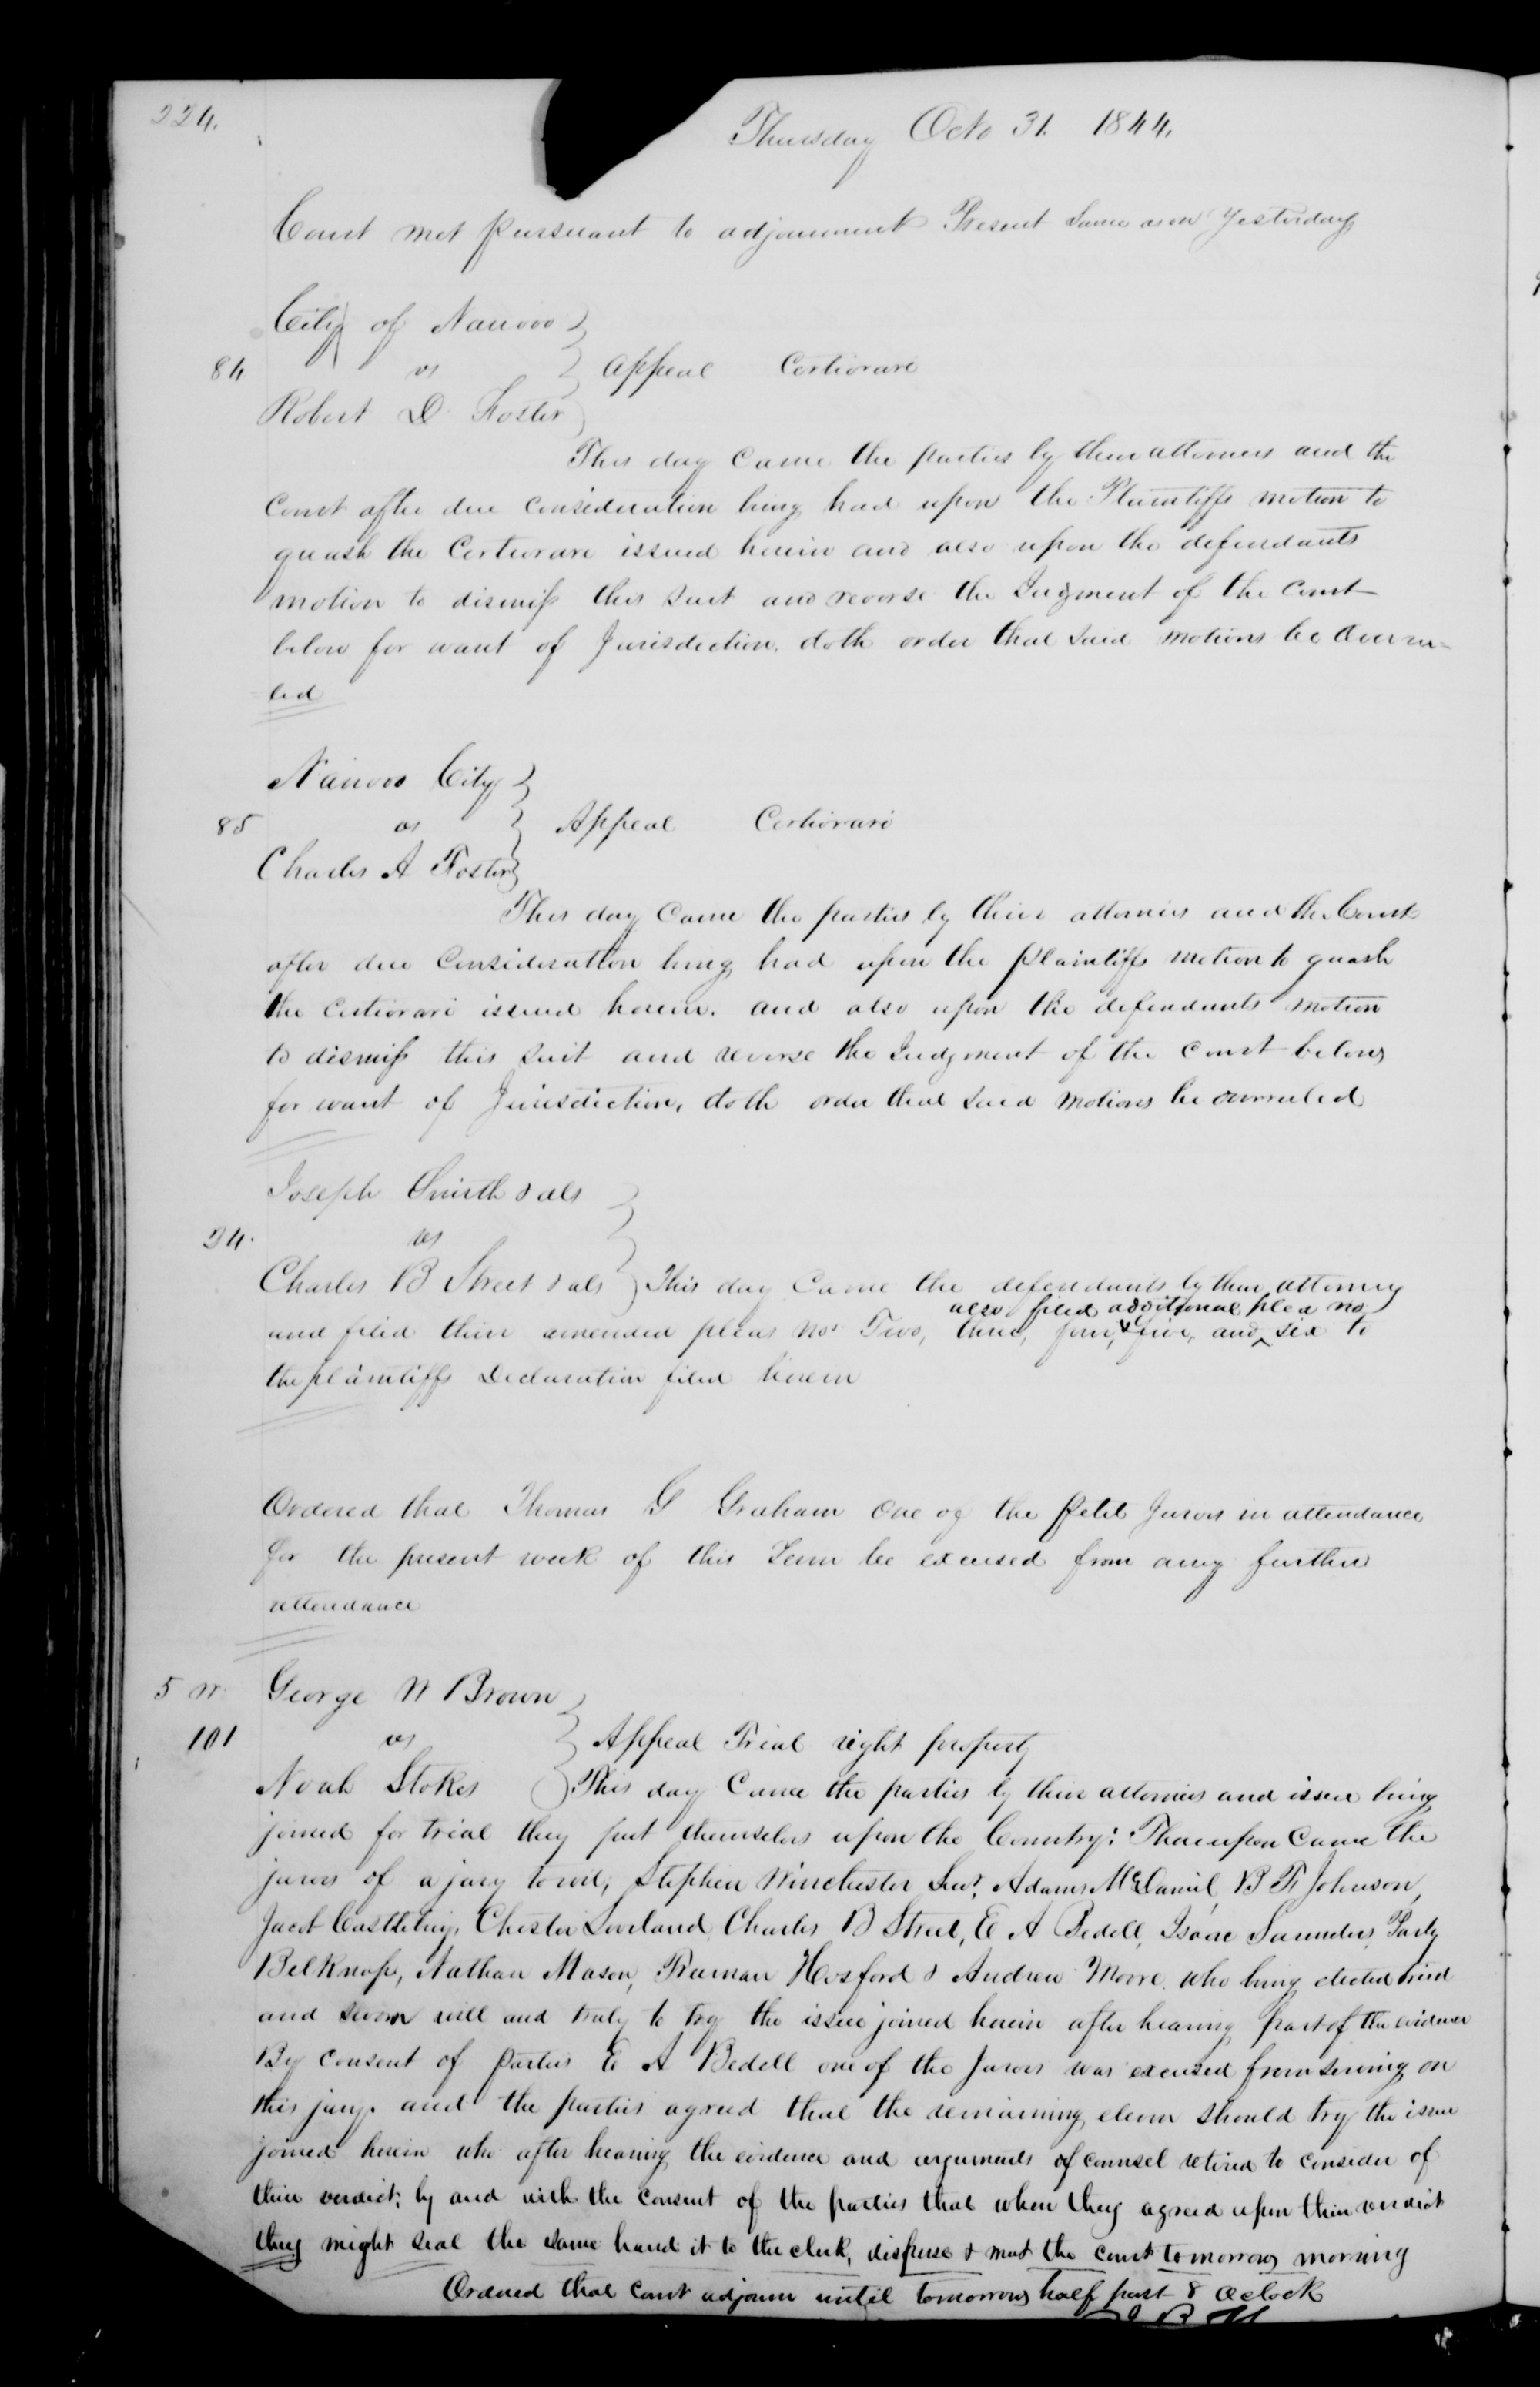 224.
Thursday Octo 31. 1844.
Court met pursuant to adjournment Present Same as on Yesterday
City of Nauvoo
84 vs Appeal Certiorari
Robert D. Foster
This day came the parties by their attorneis and the
court after due consideration being had upon the Plaintiffs motion to
quash the Certiorari issued herein and also upon the defendants
motion to dismiss this suit and reverse the Judgment of the court
below for want of Jurisdiction. doth order that said motions be Overru-
led
Nauvoo City
85 vs Appeal Certiorari
Charles A Foster
This day came the parties by their attorneis and the Court
after due consideration being had upon the plaintiffs motion to quash
the certiorari issued herein. and also upon the defendants motion
to dismiss this suit and reverse the Judgment of the court below
for want of Jurisdiction, doth order that said motions be overruled
Joseph Smith & als
24. vs
Charles B Street & als This day came the defendants by their attorney
also filed additional plea no
and filed their amended pleas nos Two, three, four, & five, and ^ six to
the plaintiffs Declaration filed herein
Ordered that Thomas G Graham one of the Petit Jurors in attendance
for the present week of this Term be excused from any further
attendance
5 W. George W Brown
101 vs Appeal Trial right property
Noah Stokes This day came the parties by their attorneis and issue being
joined for trial they put themselves upon the Country: Thereupon came the
jurors of a jury towit; Stephen Winchester Senr, Adams McDaniel, B F Johnson,
Jacob Casteling, Chester Loveland, Charles B Street, E A Bedell, Isaac Saunders,
Belknap, Nathan Mason, Truman Hosford & Andrew Moore. who being elected tried
and sworn well and truly to try the issue joined herein after hearing part of the evidence
By consent of parties E A Bedell one of the Jurors was excused from serving on
this jury. and the parties agreed that the remaining eleven should try the issue
joined herein who after hearing the evidence and arguments of counsel retired to consider of
their verdict; by and with the consent of the parties that when they agreed upon their verdict
they might seal the same hand it to the clerk, disperse & meet the court tomorrow morning
Ordered that court adjourn until tomorrow half past 8 Oclock